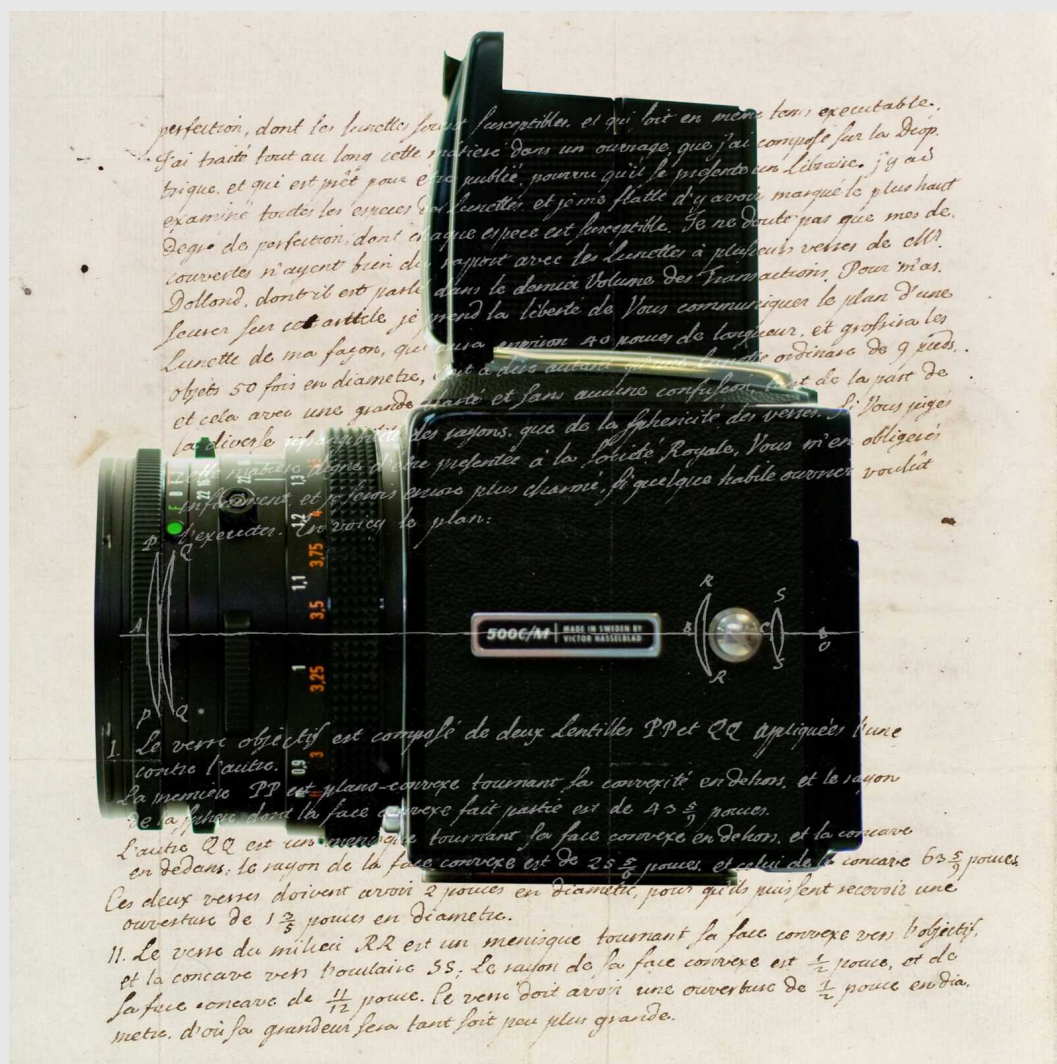 perfection, dont les lunettes soient susceptibles, et qui soit en même tems executable.
J'ai traité tout au long cette matiere dans un ouvrage, que j'ai composé sur la Diop,
trique, et qui est prêt pour etre publié, pourvu qu'il se presente un Libraire. j'y ai
examiné toutes les especes des Lunettes et je me flatte d'y avoir marqué le plus haut
degré de perfection, dont chaque espece est susceptible. Je ne doute pas que mes de,
couvertes n'ayent bien du rapport avec les Lunettes à plusieurs verres de Mr.
Dollond, dont il est parlé dans le dernier Volume des Transactions. Pour m'as,
seurer sur cet article je prend la liberté de Vous communiquer le plan d'une
Lunette de ma façon, qui aura environ 40 pouces de longueur, et grossira les
objets 50 fois en diametre, c'est à dire autant qu'une Lunette ordinaire de 9 pieds,
et cela avec une grande clarté et sans aucune confusion, tant de la part de
la diverse refrangibilité des rayons, que de la sphericité des verres. Si Vous jugés
cette matiere digne d'etre presentée à la Societé Royale, Vous m'en obligerés
infiniment, et je serois encore plus charmé, si quelque habile ouvrier vouloit
l'executer. En voicy le plan:
22 16 8
22
1,3
1,2
4
3,75
1,1
3,5
1
3,25
0,9
3
P Q
A
P Q
R
B
R
S
C
S
O
500C/M MADE IN SWEDEN BY
VICTOR HASSELBLAD
I. Le verre objectif est composé de deux Lentilles PP et QQ appliquées l'une
contre l'autre.
La premiere PP est plano-convexe tournant sa convexité en dehors, et le rayon
de la sphere dont la face convexe fait partie est de 43 5/9 pouces.
L'autre QQ est un menisque tournant sa face convexe en dehors, et la concave
en dedans; le rayon de la face convexe est de 25 5/6 pouces, et celui de la concave 63 5/9 pouces
Ces deux verres doivent avoir 2 pouces en diametre, pour qu'ils puissent recevoir une
ouverture de 1 3/5 pouces en diametre.
II. Le verre du milieu RR est un menisque tournant sa face convexe vers l'objectif,
et la concave vers l'oculaire SS; Le rayon de sa face convexe est 1/2 pouce, et de
sa face concave de 11/12 pouce. Ce verre doit avoir une ouverture de 1/2 pouce en dia,
metre, d'où sa grandeur sera tant soit peu plus grande.